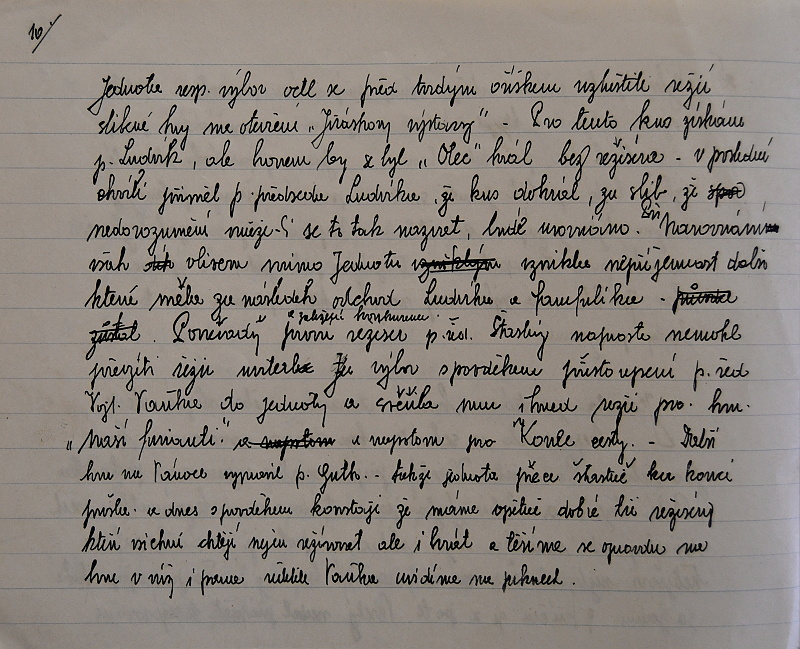 10/
Jednota resp. výbor octl se před tvrdým oříškem uzhostite režii
slibné hry na otevření „Jiráskovy výstavy" - Pro tento kus získán
p. Ludvík, ale honem by z byl „Otec" hrál bez režiséra - v poslední
chvíli přiměl p. předseda Ludvíka, že kus dohrál, za slib, že spor
nedorozumění může-li se to tak nazvat, bude urovnáno. Narovnání
však vlivem mimo Jednotu vzniklým vznikla nepříjemnost další
které měla za následek odchod Ludvíka a Pamfulíka -
zůstal. Poněvadž první režiser p. říd. Šťastný naprosto nemohl
a zatěžující konkurence
převzíti režii uvítala výbor s povděkem přistoupení p. řed
Vojt. Vaňka do jednoty a svěřila mu ihned režii pro. hru.
„Naši furianti." a naprosto a naprosto pro Konec cesty. - Další
hru na Vánoce vypravil p. Guth. - takže jednota přece šťastně ku konci
prošla. a dnes s povděkem konstatuji že máme opětně dobré tři režiséry
kteří všichni chtějí nejen režírovat ale i hrát a těšíme se opravdu na
hru v níž i pana učitele Vaňka uvidíme na prknech.